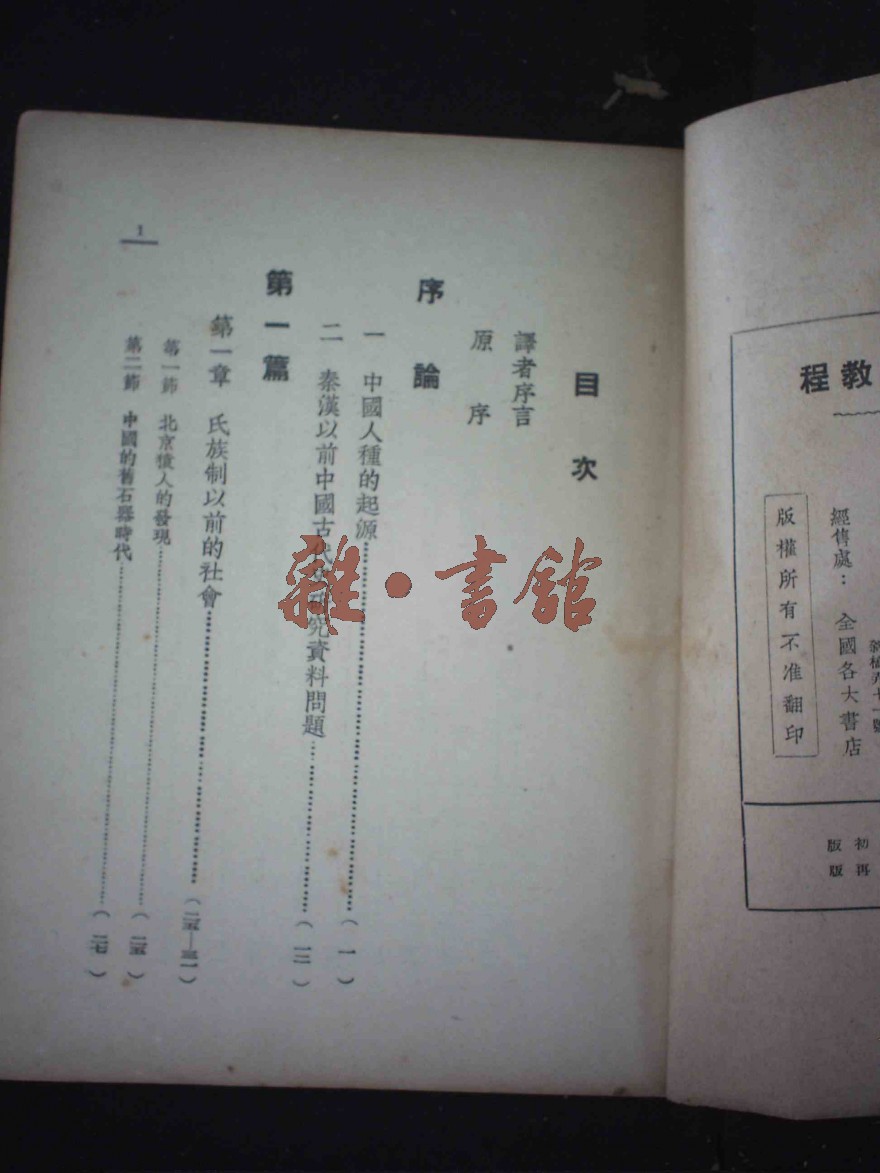 程教
經售處：全國各大書店
版權所有不准翻印
初版
再版
目次
譯者序言
原序
序論
一 中國人種的起源……（一）
二 秦漢以前中國古代史研究資料問題……（一二）
第一篇
第一章 氏族制以前的社會……（二五—三一）
第一節 北京猿人的發現……（二五）
第二節 中國的舊石器時代……（二七）
1
雜·書館